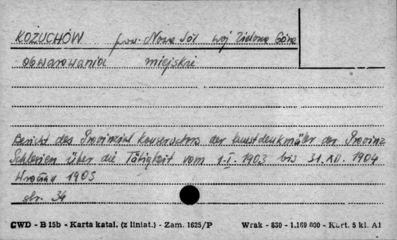 KOŻUCHÓW pow. Nowa Sól woj Zielona Góra
obwarowania miejskie
Bericht des Provinzial Konservators der Kunstdenkmäler der Provinz
Schlesien über die Tätigkeit vom 1.I. 1903 bis 31.XII. 1904
Wrocław 1905
str. 34
CWD - B 15b - Karta katal. (z liniat.) - Zam. 1625/P Wrak - 830 - 1.160 000 - Kart. 5 kl. A1